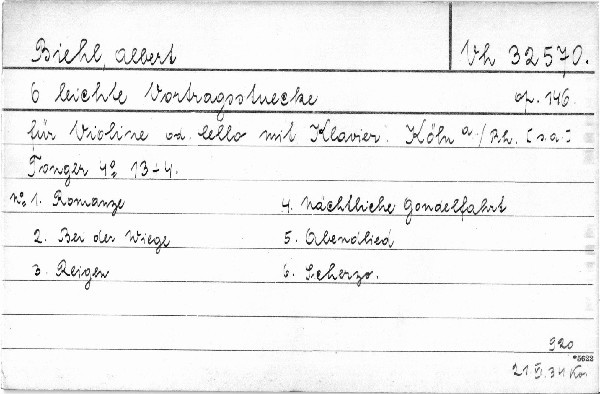 Biehl, Albert
Vh 32570.
6 leichte Vortragsstuecke op. 146.
für Violine od. Cello mit Klavier. Köln a/Rh. [s.a.]
Tonger 4º 13+4.
Nº 1. Romanze
2. Bei der Wiege
3. Reigen
4. Nächtliche Gondelfahrt
5. Abendlied
6. Scherzo.
920
*5622